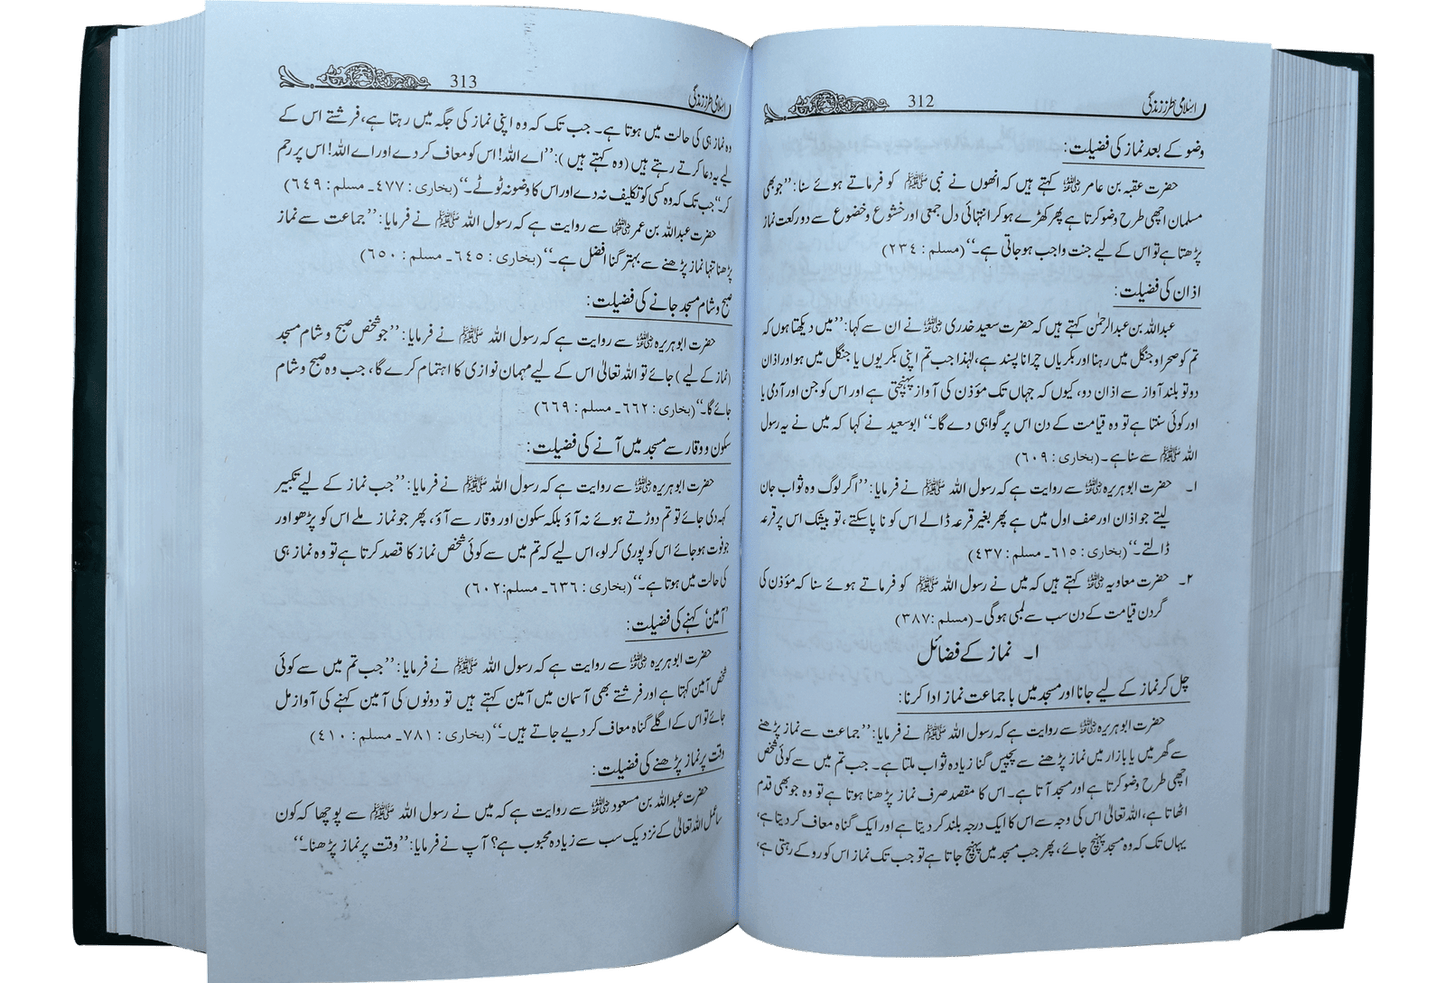 اسلامی طرز زندگی 312
وضو کے بعد نماز کی فضیلت:
حضرت عقبہ بن عامرؓ کہتے ہیں کہ انھوں نے نبی ﷺ کو فرماتے ہوئے سنا: ’’جو بھی
مسلمان اچھی طرح وضو کرتا ہے پھر کھڑے ہو کر انتہائی دل جمعی اور خشوع وخضوع سے دو رکعت نماز
پڑھتا ہے تو اس کے لیے جنت واجب ہو جاتی ہے۔‘‘ (مسلم : ۲۳۴)
اذان کی فضیلت:
عبداللہ بن عبدالرحمٰن کہتے ہیں کہ حضرت سعید خدریؓ نے ان سے کہا: ’’میں دیکھتا ہوں کہ
تم کو صحرا و جنگل میں رہنا اور بکریاں چرانا پسند ہے، لہٰذا جب تم اپنی بکریوں یا جنگل میں ہو اور اذان
دو تو بلند آواز سے اذان دو، کیوں کہ جہاں تک مؤذن کی آواز پہنچتی ہے اور اس کو جن اور آدمی یا
اور کوئی سنتا ہے تو وہ قیامت کے دن اس پر گواہی دے گا۔‘‘ ابوسعید نے کہا کہ میں نے یہ رسول
اللہ ﷺ سے سنا ہے۔ (بخاری : ۶۰۹)
۱۔ حضرت ابوہریرہؓ سے روایت ہے کہ رسول اللہ ﷺ نے فرمایا: ’’اگر لوگ وہ ثواب جان
لیتے جو اذان اور صف اول میں ہے پھر بغیر قرعہ ڈالے اس کو نا پاسکتے، تو بیشک اس پر قرعہ
ڈالتے۔‘‘ (بخاری : ۶۱۵۔ مسلم : ۴۳۷)
۲۔ حضرت معاویہؓ کہتے ہیں کہ میں نے رسول اللہ ﷺ کو فرماتے ہوئے سنا کہ مؤذن کی
گردن قیامت کے دن سب سے لمبی ہوگی۔ (مسلم : ۳۸۷)
۱۔ نماز کے فضائل
چل کر نماز کے لیے جانا اور مسجد میں با جماعت نماز ادا کرنا:
حضرت ابوہریرہؓ سے روایت ہے کہ رسول اللہ ﷺ نے فرمایا: ’’جماعت سے نماز پڑھنے
سے گھر میں یا بازار میں نماز پڑھنے سے پچیس گنا زیادہ ثواب ملتا ہے۔ جب تم میں سے کوئی شخص
اچھی طرح وضو کرتا ہے اور مسجد آتا ہے۔ اس کا مقصد صرف نماز پڑھنا ہوتا ہے تو وہ جو بھی قدم
اٹھاتا ہے، اللہ تعالیٰ اس کی وجہ سے اس کا ایک درجہ بلند کردیتا ہے اور ایک گناہ معاف کردیتا ہے،
یہاں تک کہ وہ مسجد پہنچ جائے، پھر جب مسجد میں پہنچ جاتا ہے تو جب تک نماز اس کو روکے رہتی ہے،
اسلامی طرز زندگی 313
وہ نماز ہی کی حالت میں ہوتا ہے۔ جب تک کہ وہ اپنی نماز کی جگہ میں رہتا ہے، فرشتے اس کے
لیے یہ دعا کرتے رہتے ہیں (وہ کہتے ہیں): ’’اے اللہ! اس کو معاف کردے اور اے اللہ! اس پر رحم
کر۔‘‘ جب تک کہ وہ کسی کو تکلیف نہ دے اور اس کا وضو نہ ٹوٹے۔‘‘ (بخاری : ۴۷۷۔ مسلم : ۶۴۹)
حضرت عبداللہ بن عمرؓ سے روایت ہے کہ رسول اللہ ﷺ نے فرمایا: ’’جماعت سے نماز
پڑھنا تنہا نماز پڑھنے سے بہتر گنا افضل ہے۔‘‘ (بخاری : ۶۴۵۔ مسلم : ۶۵۰)
صبح و شام مسجد جانے کی فضیلت:
حضرت ابوہریرہؓ سے روایت ہے کہ رسول اللہ ﷺ نے فرمایا: ’’جو شخص صبح و شام مسجد
(نماز کے لیے) جائے تو اللہ تعالیٰ اس کے لیے مہمان نوازی کا اہتمام کرے گا، جب وہ صبح و شام
جائے گا۔‘‘ (بخاری : ۶۶۲۔ مسلم : ۶۶۹)
سکون و وقار سے مسجد میں آنے کی فضیلت:
حضرت ابوہریرہؓ سے روایت ہے کہ رسول اللہ ﷺ نے فرمایا: ’’جب نماز کے لیے تکبیر
کہہ دی جائے تو تم دوڑتے ہوئے نہ آؤ بلکہ سکون اور وقار سے آؤ، پھر جو نماز ملے اس کو پڑھو اور
جو فوت ہو جائے اس کو پوری کرلو، اس لیے کہ تم میں سے کوئی شخص نماز کا قصد کرتا ہے تو وہ نماز ہی
کی حالت میں ہوتا ہے۔‘‘ (بخاری : ۶۳۶۔ مسلم: ۶۰۲)
’آمین‘ کہنے کی فضیلت:
حضرت ابوہریرہؓ سے روایت ہے کہ رسول اللہ ﷺ نے فرمایا: ’’جب تم میں سے کوئی
شخص آمین کہتا ہے اور فرشتے بھی آسمان میں آمین کہتے ہیں تو دونوں کی آمین کہنے کی آواز مل
جائے تو اس کے اگلے گناہ معاف کر دیے جاتے ہیں۔‘‘ (بخاری : ۷۸۱۔ مسلم : ۴۱۰)
وقت پر نماز پڑھنے کی فضیلت:
حضرت عبداللہ بن مسعودؓ سے روایت ہے کہ میں نے رسول اللہ ﷺ سے پوچھا کہ کون
سا عمل اللہ تعالیٰ کے نزدیک سب سے زیادہ محبوب ہے؟ آپ نے فرمایا: ’’وقت پر نماز پڑھنا۔‘‘